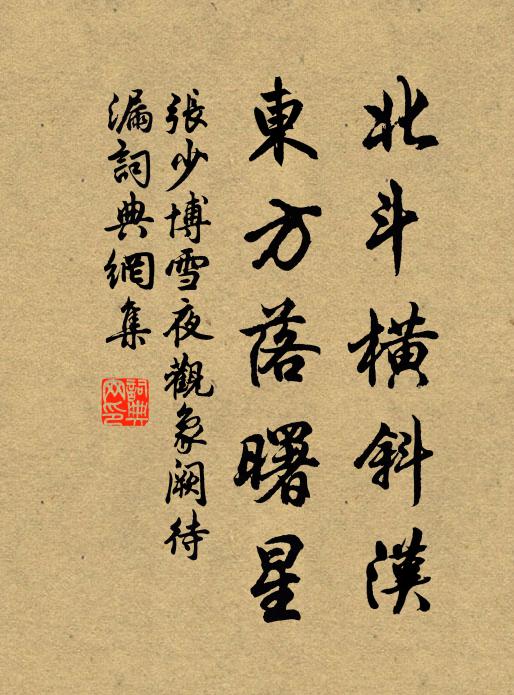 北斗橫斜漢
東方落曙星
張少博雪夜觀象闕待
漏詞典網集
詞典
网印